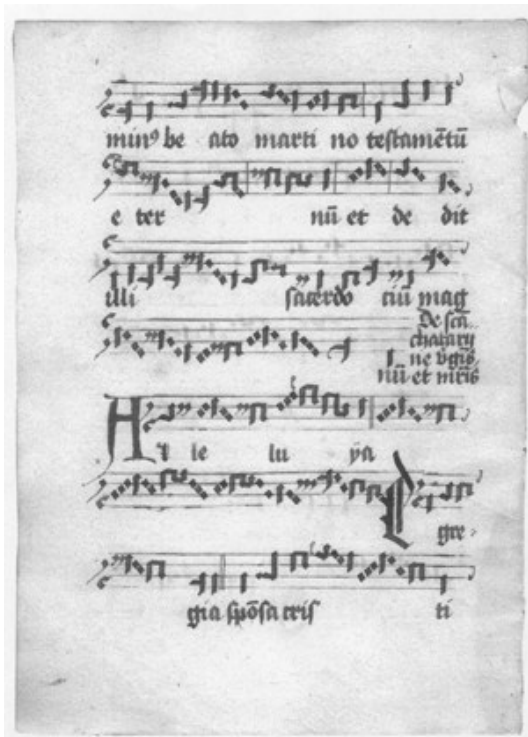 minꝰ be ato marti no testamētū
e ter nū et de dit
illi sacerdo tiū mag
De sca
nū et mr̄is
Al le lu ya
Egre
gia spōsa cris ti